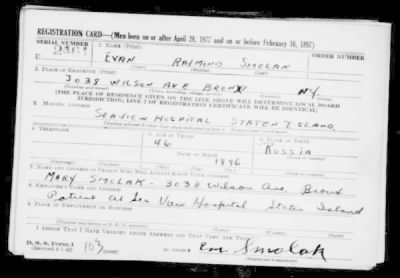 REGISTRATION CARD—(Men born on or after April 28, 1877 and on or before February 16, 1897)
SERIAL NUMBER 1. NAME (Print) ORDER NUMBER
U EVAN RAYMOND SMOLAK
2. PLACE OF RESIDENCE (Print)
3038 WILSON AVE BRONX NY
[THE PLACE OF RESIDENCE GIVEN ON THE LINE ABOVE WILL DETERMINE LOCAL BOARD
JURISDICTION; LINE 2 OF REGISTRATION CERTIFICATE WILL BE IDENTICAL]
3. MAILING ADDRESS
SEAVIEW HOSPITAL STATEN ISLAND
4. TELEPHONE 5. AGE IN YEARS 6. PLACE OF BIRTH
46
DATE OF BIRTH RUSSIA
1896
7. NAME AND ADDRESS OF PERSON WHO WILL ALWAYS KNOW YOUR ADDRESS
MARY SMOLAK - 3038 Wilson Ave. Bronx
8. EMPLOYER'S NAME AND ADDRESS
Patient At Sea View Hospital Staten Island
9. PLACE OF EMPLOYMENT OR BUSINESS
I AFFIRM THAT I HAVE VERIFIED ABOVE ANSWERS AND THAT THEY ARE TRUE.
D. S. S. Form 1
(Revised 4-1-42) 103 Smolak